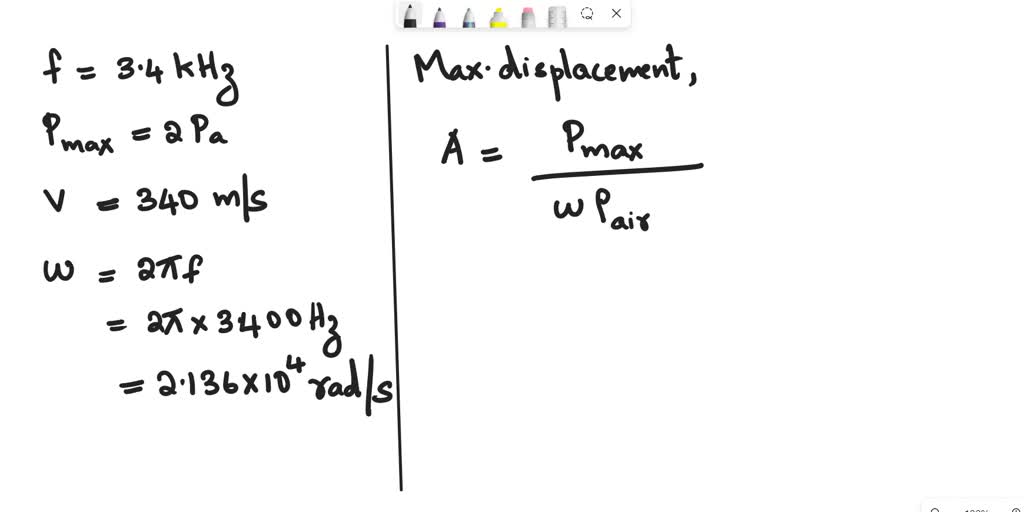 f = 3.4 kHz
Pmax = 2 Pa
V = 340 m/s
ω = 2πf
= 2π × 3400 Hz
= 2.136 × 10⁴ rad/s
Max. displacement,
A = Pmax
ω Pair